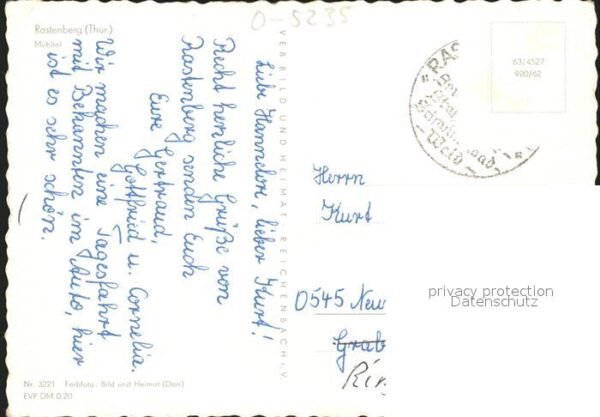 O-5235
Rastenberg (Thür.)
Mühltal
Liebe Hannelore, lieber Kurt!
Recht herzliche Grüße von
Rastenberg senden Euch
Eure Gertraud,
Gottfried u. Cornelia.
Wir machen eine Tagesfahrt
mit Bekannten im Auto, hier
ist es sehr schön.
VEB BILD UND HEIMAT REICHENBACH I. V.
63/4527
920/62
Herrn
Kurt
0545 Neu
Grab
Rin
privacy protection
Datenschutz
Nr. 3221 Farbfoto: Bild und Heimat (Darr)
EVP DM 0,20